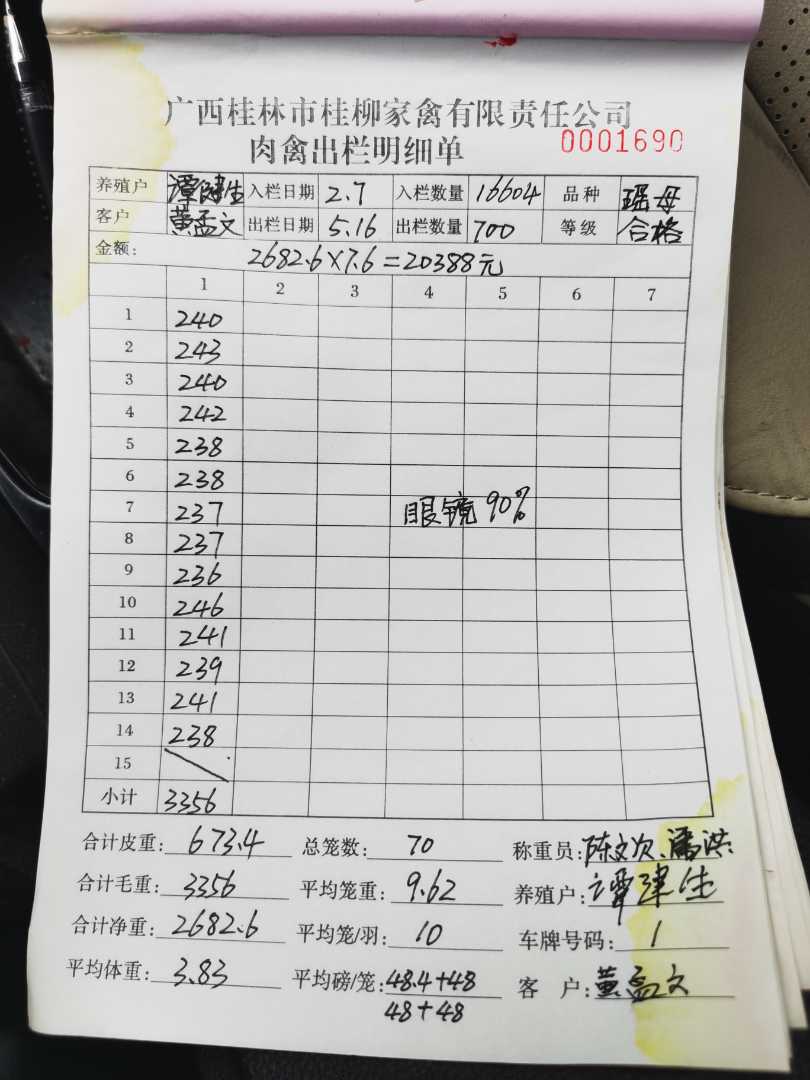 广西桂林市桂柳家禽有限责任公司
肉禽出栏明细单 0001690
养殖户 谭建生 入栏日期 2.7 入栏数量 16604 品种 瑶母
客户 黄孟文 出栏日期 5.16 出栏数量 700 等级 合格
金额: 2682.6×7.6=20388元
1 2 3 4 5 6 7
1 240
2 243
3 240
4 242
5 238
6 238
7 237 眼镜90%
8 237
9 236
10 246
11 241
12 239
13 241
14 238
15
小计 3356
合计皮重: 673.4 总笼数: 70 称重员: 陈文次、潘洪
合计毛重: 3356 平均笼重: 9.62 养殖户: 谭建生
合计净重: 2682.6 平均笼/羽: 10 车牌号码: 1
平均体重: 3.83 平均磅/笼: 48.4+48 客户: 黄孟文
48+48